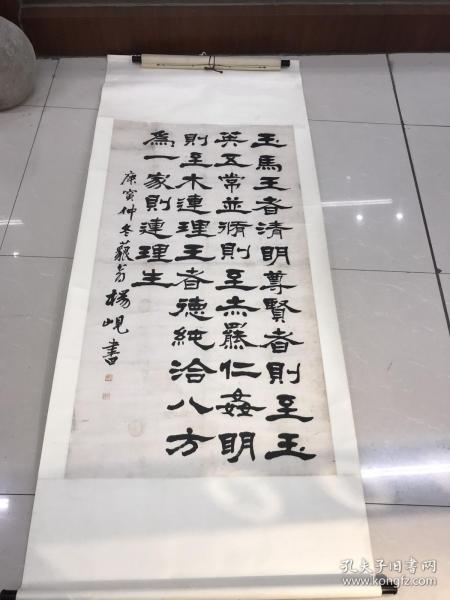 玉馬王者清明尊賢者則至玉
英五常並脩則至赤羆仁姦明
則至木連理王者德純洽八方
為一家則連理生
庚寅仲冬藐翁楊峴書
孔夫子旧书网
www.kongfz.com